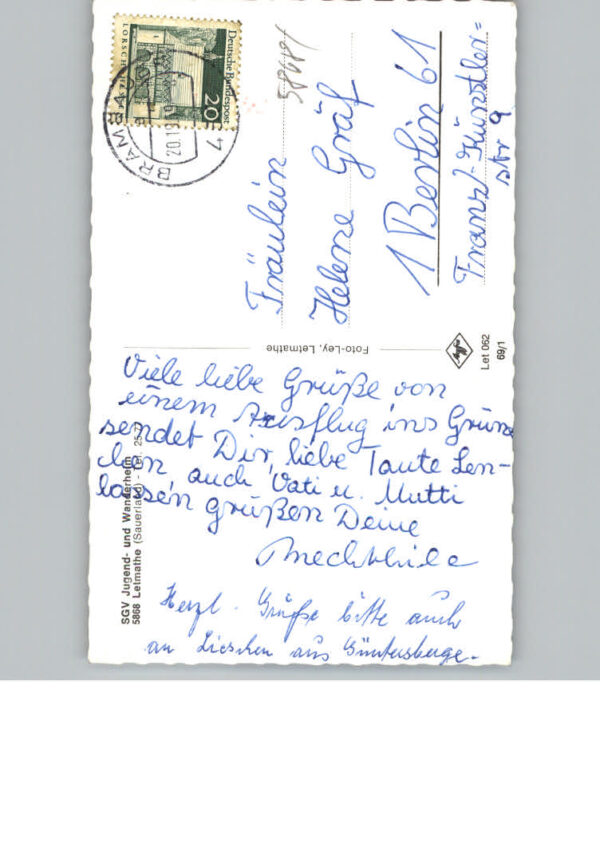 Deutsche Bundespost
20
LORSCH
BRAMBAUER
20.10
58681
Fräulein
Helene Gräf
1 Berlin 61
Franz-Künstler=
str 9
Foto-Ley, Letmathe
Let 062
69/1
SGV Jugend- und Wanderheim
5868 Letmathe (Sauerland) Tel. 25
Viele liebe Grüße von
einem Ausflug ins Grüne
sendet Dir, liebe Tante Len-
chen, auch Vati u. Mutti
lassen grüßen Deine
Mechthilde
Herzl. Grüße bitte auch
an Lieschen aus Güntersberge.